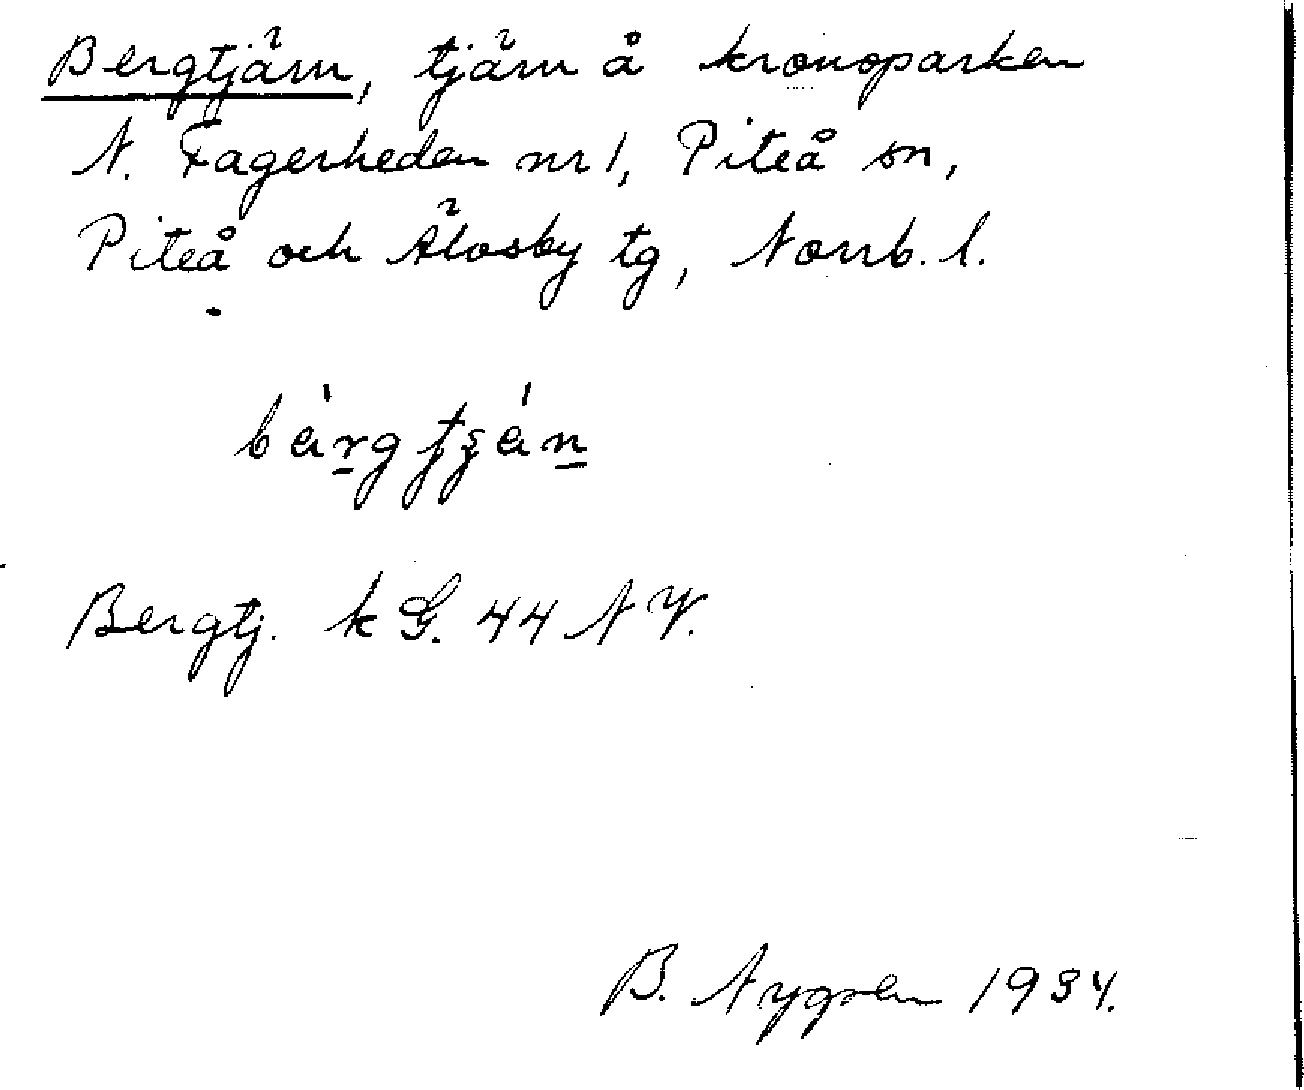 Bergtjärn, tjärn å kronoparken
N. Fagerheden nr 1, Piteå sn,
Piteå och Älvsby tg, Norrb. l.
Bergtj. k G. 44 N V.
B. Nygren 1934.